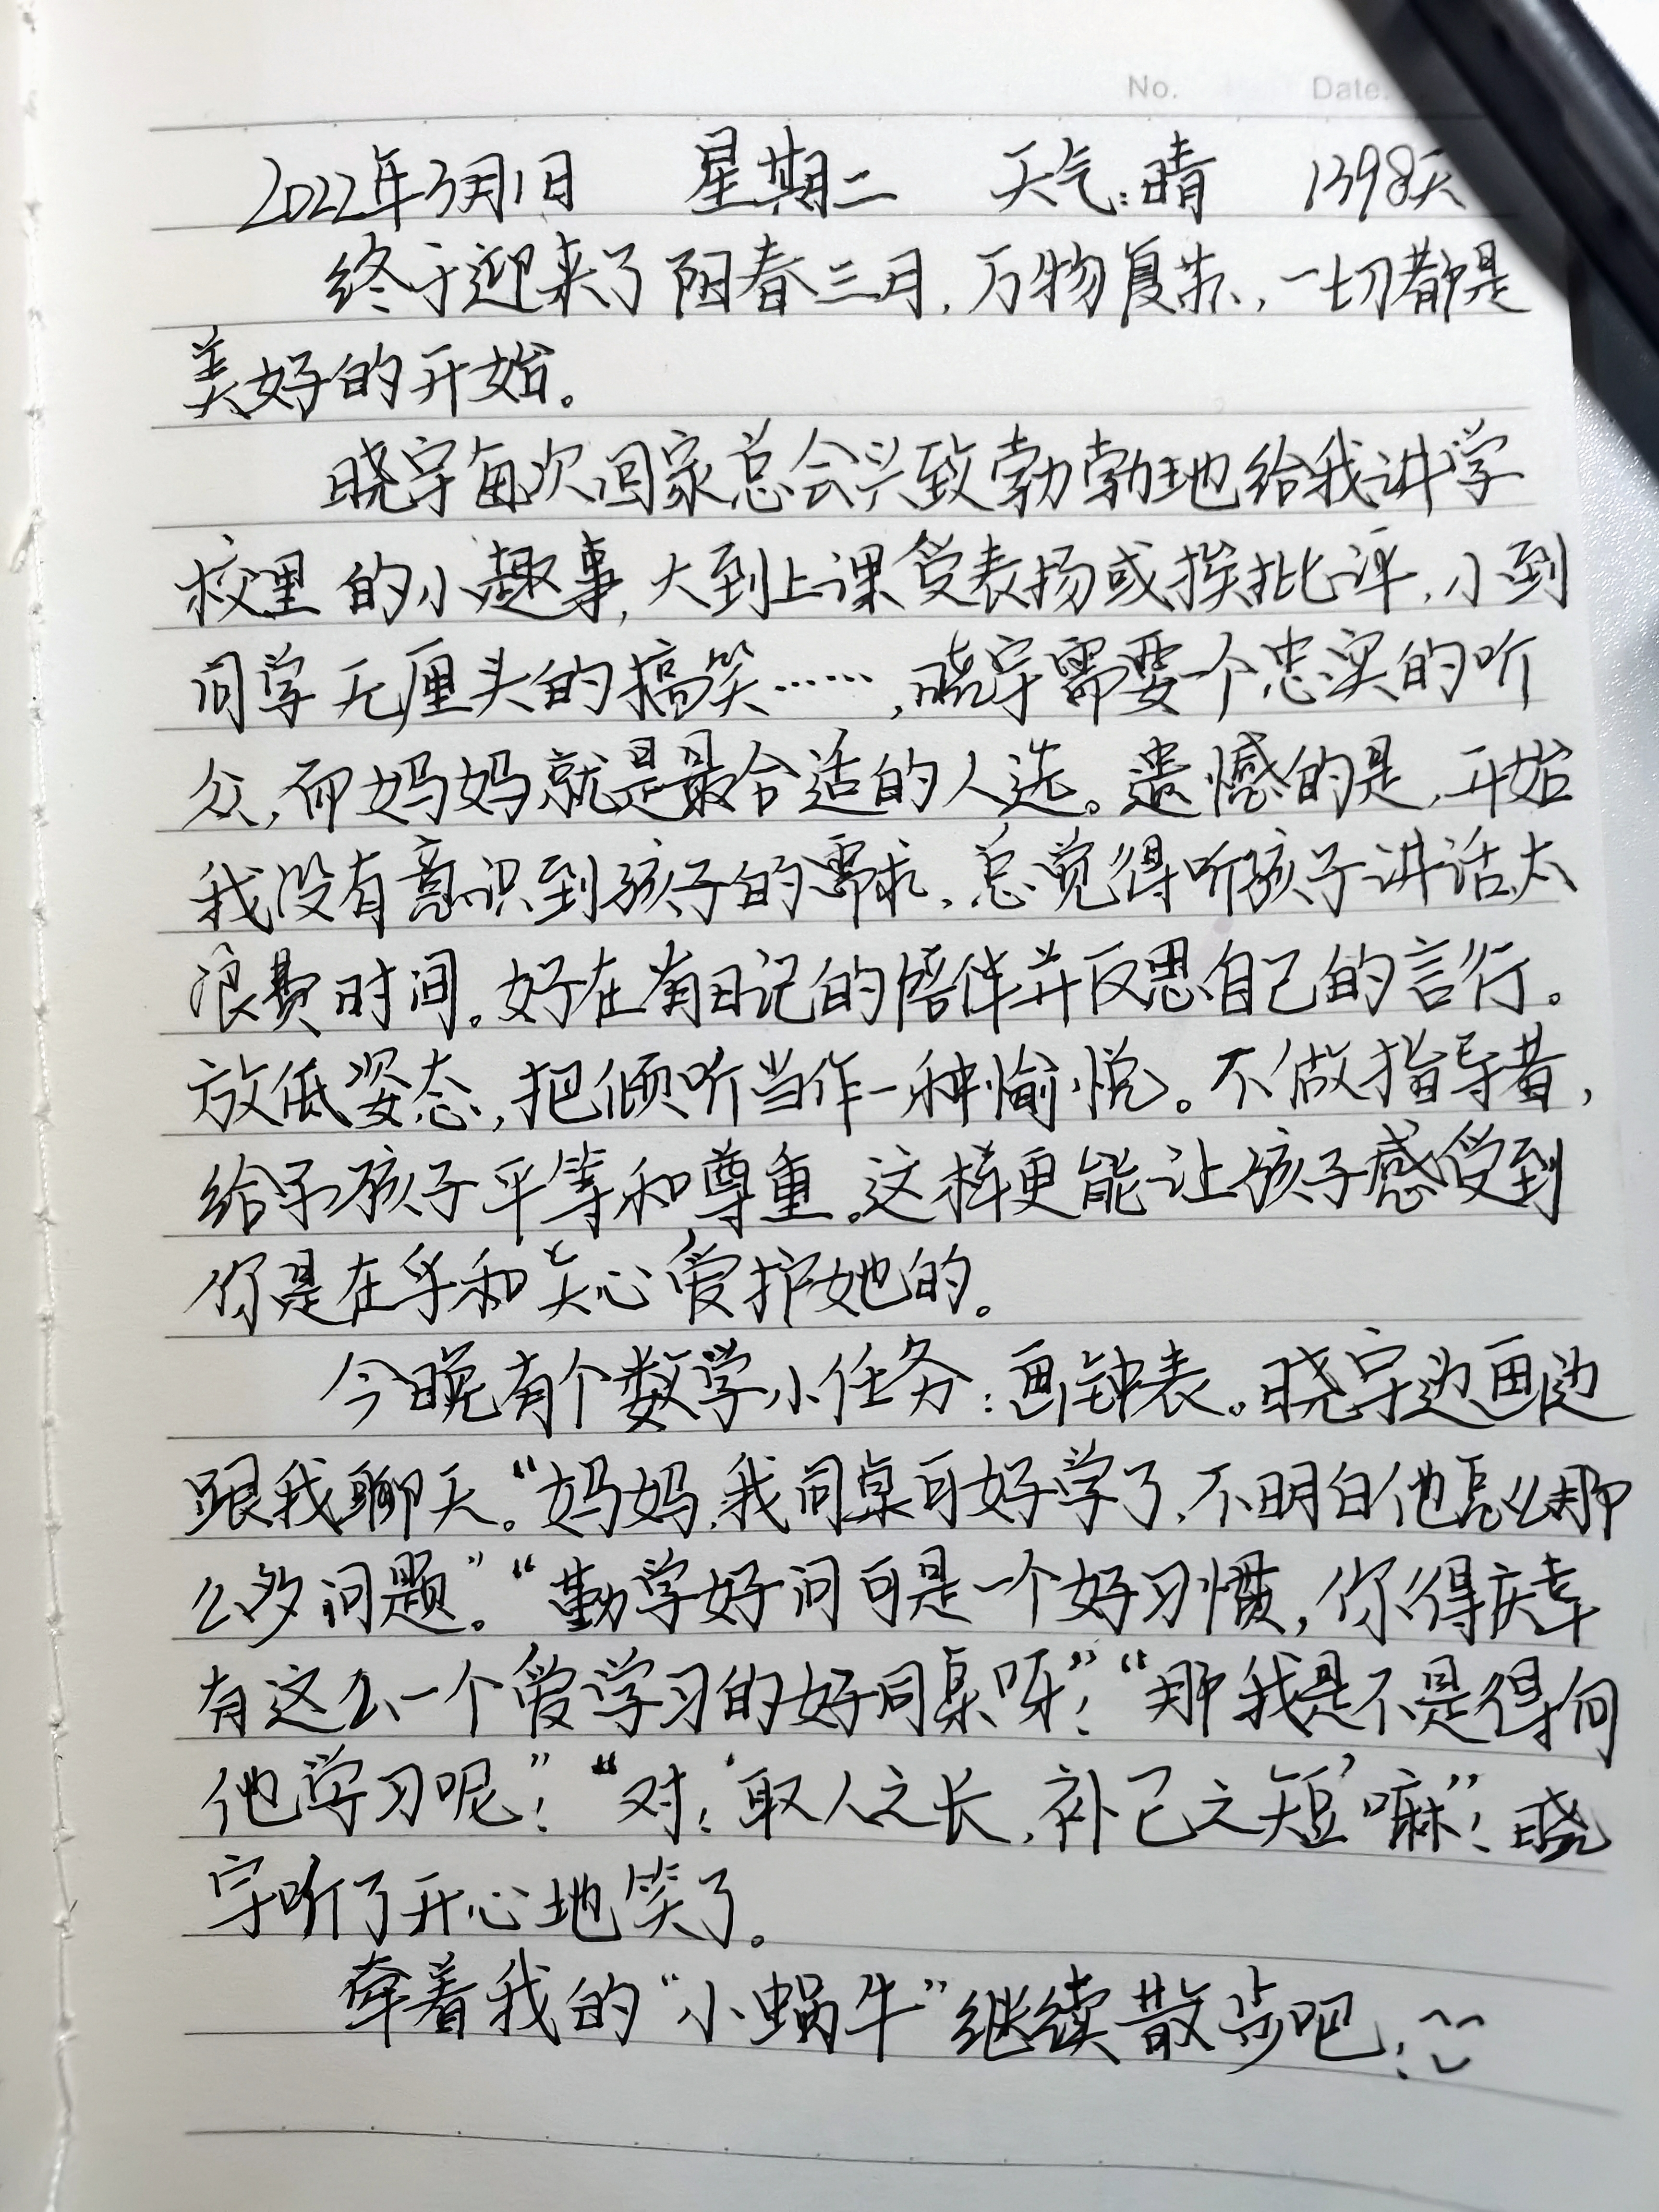 No. Date.
2022年3月1日 星期二 天气:晴 1398天
终于迎来了阳春三月,万物复苏,一切都是
美好的开始。
晓宇每次回家总会兴致勃勃地给我讲学
校里的小趣事,大到上课受表扬或挨批评,小到
同学无厘头的搞笑……,晓宇需要一个忠实的听
众,而妈妈就是最合适的人选。遗憾的是,开始
我没有意识到孩子的需求,总觉得听孩子讲话太
浪费时间。好在有日记的陪伴并反思自己的言行。
放低姿态,把倾听当作一种愉悦。不做指导者,
给予孩子平等和尊重。这样更能让孩子感受到
你是在乎和关心爱护她的。
今晚有个数学小任务:画钟表。晓宇边画边
跟我聊天。“妈妈,我同桌可好学了,不明白他怎么那
么多问题。”“勤学好问可是一个好习惯,你得庆幸
有这么一个爱学习的好同桌呀!”“那我是不是得向
他学习呢!”“对!‘取人之长,补己之短’嘛”!晓
宇听了开心地笑了。
牵着我的“小蜗牛”继续散步吧!